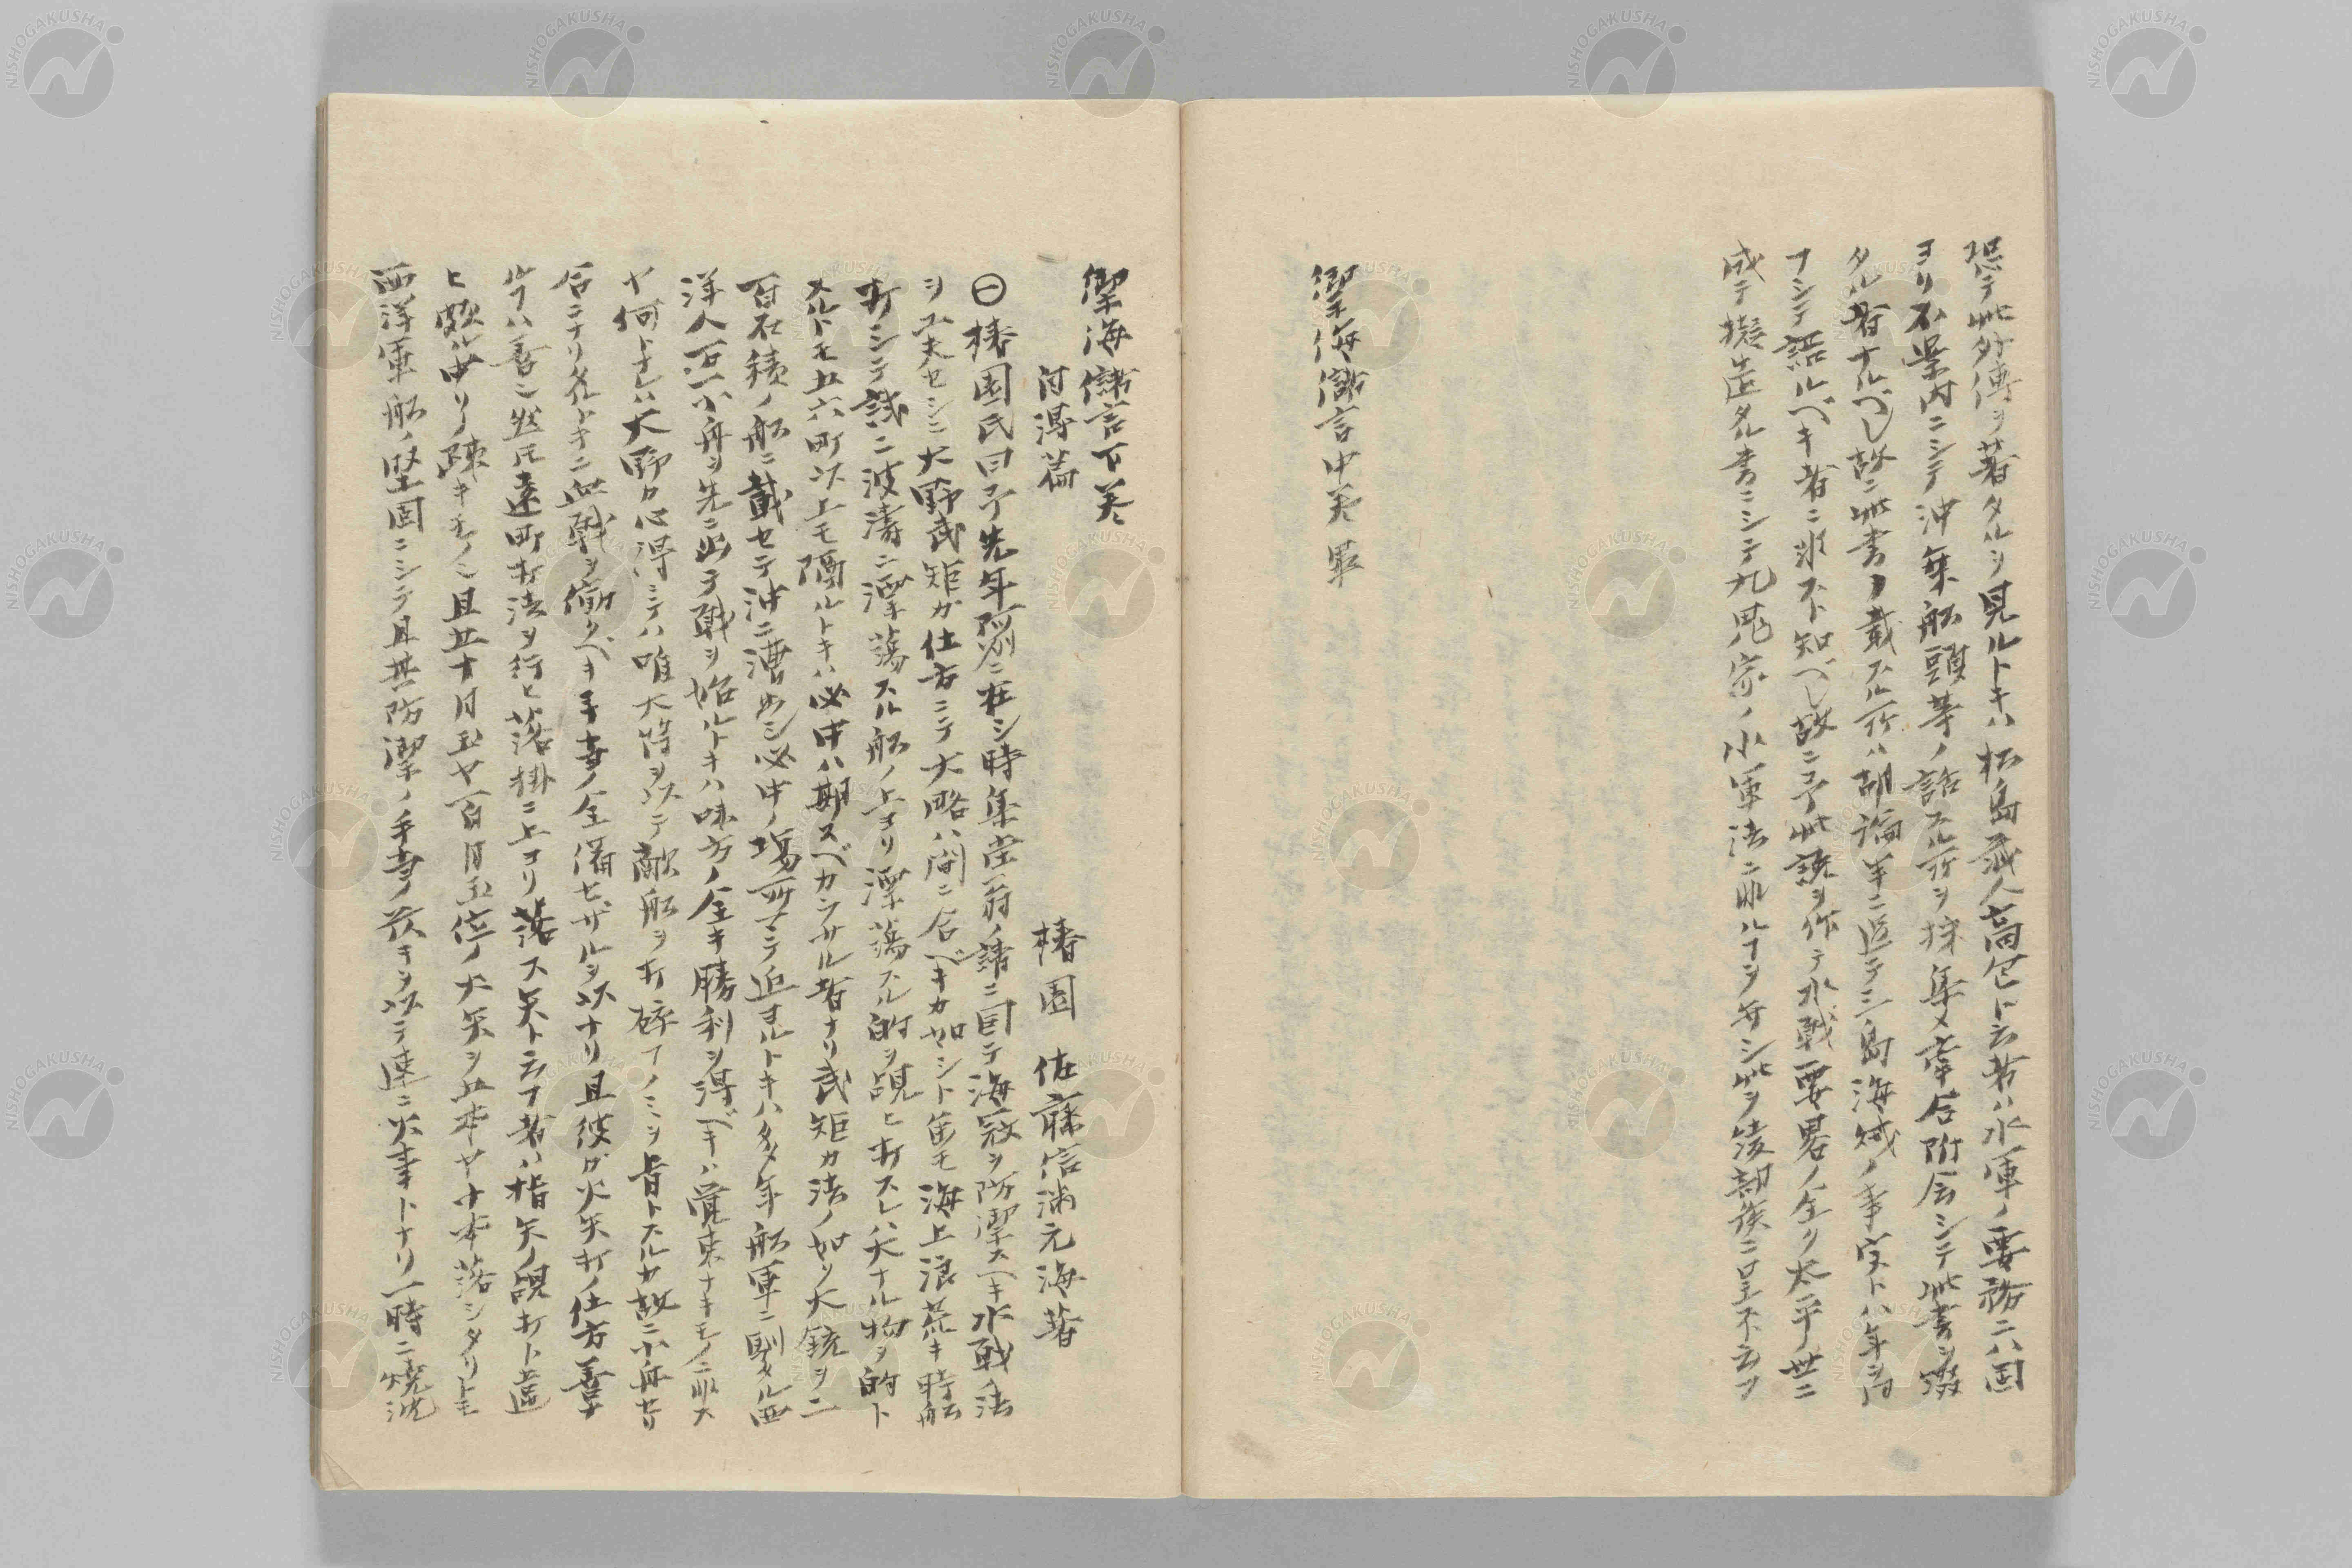 恐テ此外傳ヲ著タルヲ見ルトキハ松島蔵人高包ト云者ハ水軍ノ要務ニハ固
ヨリ不案内ニシテ沖乗船頭等ノ話スル所ヲ採集メ牽合附会シテ此書ヲ綴
タル者ナルベし故ニ此書ノ載スル所ハ胡論半ニ過テ三島海賊ノ事実トハ年ヲ同
フシテ語ルベキ者ニ非ズト知べし故ニ予此説ヲ作テ水戦要畧ノ全ク太平ノ世ニ
成テ擬造タル書ニシテ九鬼家ノ小軍法ニ非ルヿヲ弁シ此ヲ綾部侯ニ呈スト云フ
禦海儲言中巻 畢
禦海儲言下巻
付得篇
椿園 佐藤信淵元海著
㊀椿園氏曰予先年阿州ニ在シ時集堂翁ノ請ニ因テ海寇ヲ防禦スヘキ水戦ノ法
ヲ工夫セシニ大野武矩ガ仕方ニテ大略ハ間ニ合ベキカ如シト雖モ海上浪荒キ時船
打シテ試ニ波濤ニ漂蕩スル船ノ上ヨリ漂蕩スル的ヲ覘ヒ打スレハ大ナル物ヲ的ト
スルトモ五六町以上モ隔ルトキハ必中ハ期スベカラサル者ナリ武矩カ法ノ如ク大銃ヲ二
百石積ノ船ニ載セテ沖ニ漕出シ必中ノ場所マテ近ヨルトキハ多年船軍ニ馴タル西
洋人百一小舟ヲ先ニ出テ戦ヲ始ルトキハ味方ノ全キ勝利ヲ得ベキハ覚束ナキモノニ非ス
ヤ何トナレハ大野カ心得ミテハ唯大筒ヲ以テ敵船ヲ打碎クノミヲ旨トスルカ故ニ小舟セリ
合ニナリタルトキニ血戦ヲ働クベキ手당ノ全備セザルヲ以ナリ且彼ガ火矢打ノ仕方善ナ
ルヿハ善シ然氏遠町打法ヲ行ヒ落掛ニ上ヨリ落ス矢ト云フ者ハ指矢ノ覘打ト違
ヒ敵ニ中リ疎キモノニ且五十目玉ヤ一百目玉位ノ大矢ヲ五本ヤ十本落シタリトモ
西洋軍船ノ堅固ニシテ且其防禦ノ手당ノ厳キヲ以テ速ニ火事トナリ一時ニ焼沈